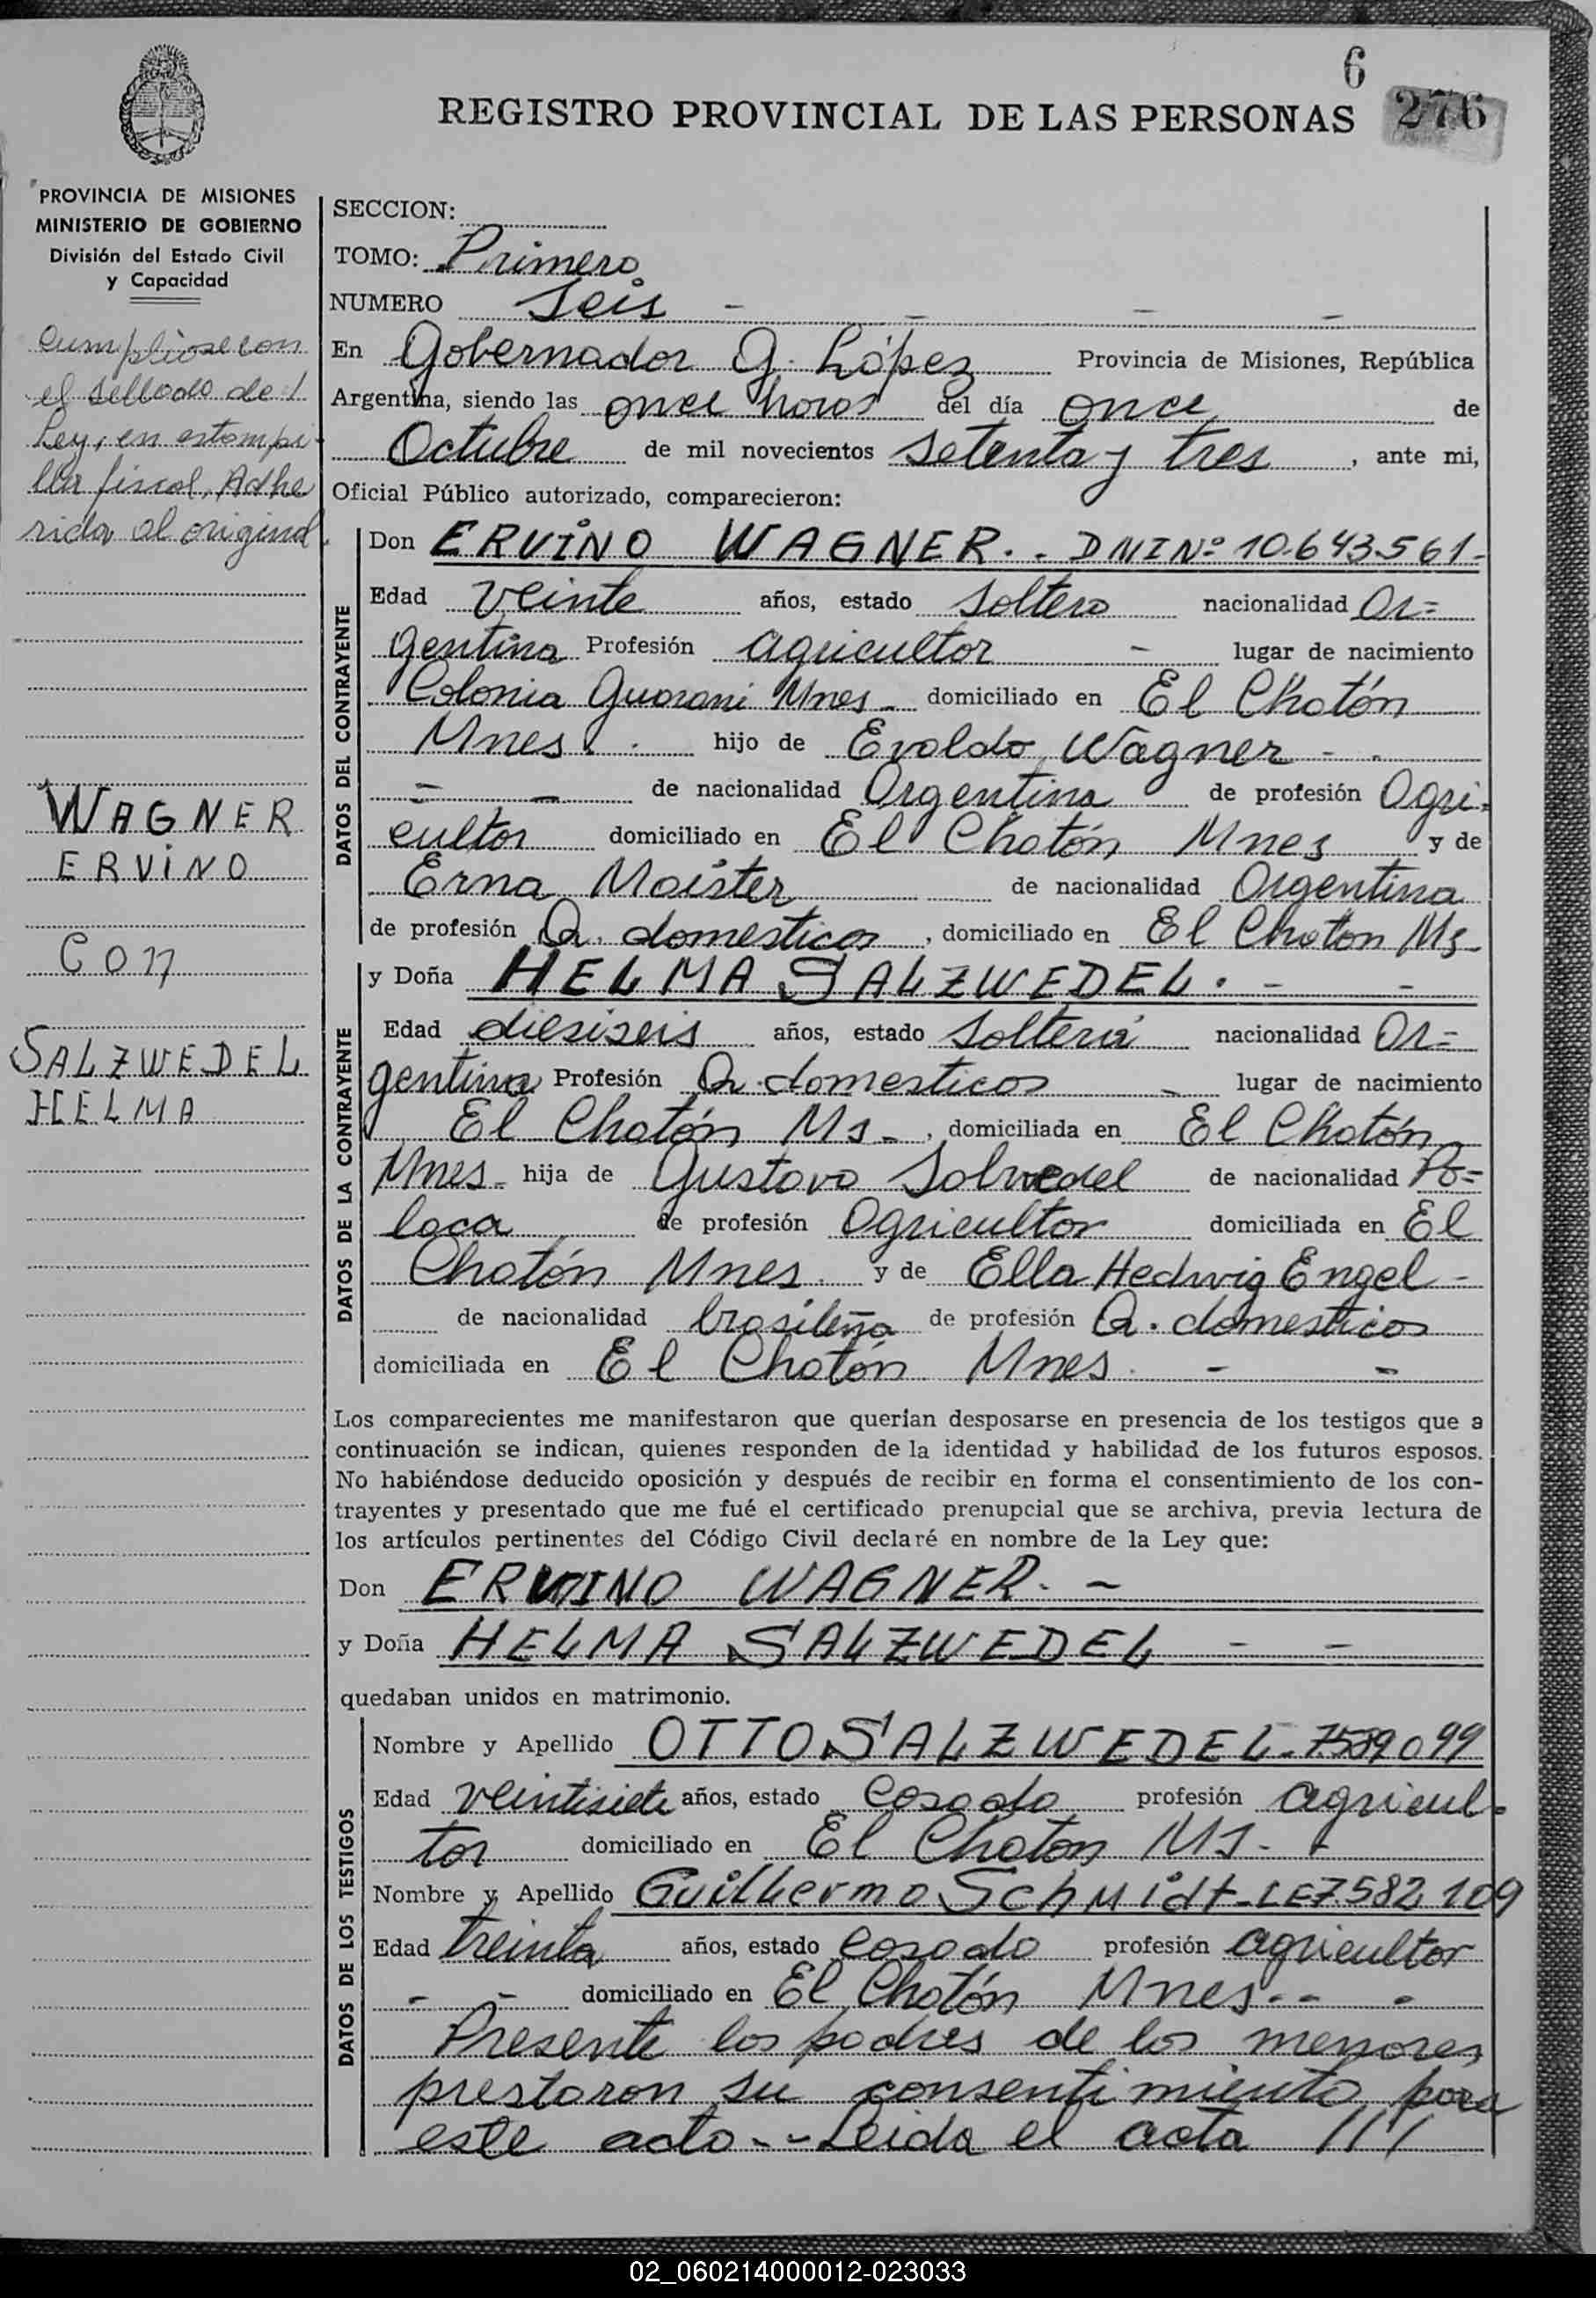 6
REGISTRO PROVINCIAL DE LAS PERSONAS 276
PROVINCIA DE MISIONES
MINISTERIO DE GOBIERNO
División del Estado Civil
y Capacidad
Cumpliose con
el sellado de l
Ley, en estampi
lla fiscal, Adhe
rida al original.
WAGNER
ERVINO
CON
SALZWEDEL
HELMA
SECCION:
TOMO: Primero
NUMERO Seis - - - -
En Gobernador G. López Provincia de Misiones, República
Argentina, siendo las once horas del día once de
Octubre de mil novecientos setenta y tres, ante mi,
Oficial Público autorizado, comparecieron:
DATOS DEL CONTRAYENTE
Don ERVINO WAGNER. - DNI Nº 10.643.561-
Edad veinte años, estado soltero nacionalidad Ar=
gentina Profesión agricultor - lugar de nacimiento
Colonia Guarani Mnes - domiciliado en El Chatón
Mnes. . hijo de Evaldo Wagner - .
- - de nacionalidad Argentina de profesión Agri=
cultor domiciliado en El Chatón Mnes y de
Erna Moister de nacionalidad Argentina
de profesión Q. domesticos, domiciliado en El Chaton Ms-
DATOS DE LA CONTRAYENTE
y Doña HELMA SALZWEDEL. - -
Edad diesiseis años, estado soltera nacionalidad Ar=
gentina Profesión Q. domesticos - lugar de nacimiento
El Chatón Ms-, domiciliada en El Chatón
Mnes- hija de Gustavo Salwedel de nacionalidad Po=
laca de profesión Agricultor domiciliada en El
Chatón Mnes. y de Ella Hedwig Engel -
de nacionalidad brasileña de profesión Q. domesticos
domiciliada en El Chatón Mnes. - -
Los comparecientes me manifestaron que querían desposarse en presencia de los testigos que a
continuación se indican, quienes responden de la identidad y habilidad de los futuros esposos.
No habiéndose deducido oposición y después de recibir en forma el consentimiento de los con-
trayentes y presentado que me fué el certificado prenupcial que se archiva, previa lectura de
los artículos pertinentes del Código Civil declaré en nombre de la Ley que:
Don ERVINO WAGNER. -
y Doña HELMA SALZWEDEL - -
quedaban unidos en matrimonio.
DATOS DE LOS TESTIGOS
Nombre y Apellido OTTO SALZWEDEL- 7589099
Edad veintisiete años, estado casado profesión agricul-
tor domiciliado en El Chaton Ms-
Nombre y Apellido Guillermo Schmidt-LE7.582.109
Edad treinta años, estado casado profesión agricultor
- - domiciliado en El Chatón Mnes.-- -
Presente los padres de los menores
prestaron su consentimiento para
este acto.--Leida el acta ///
02_060214000012-023033